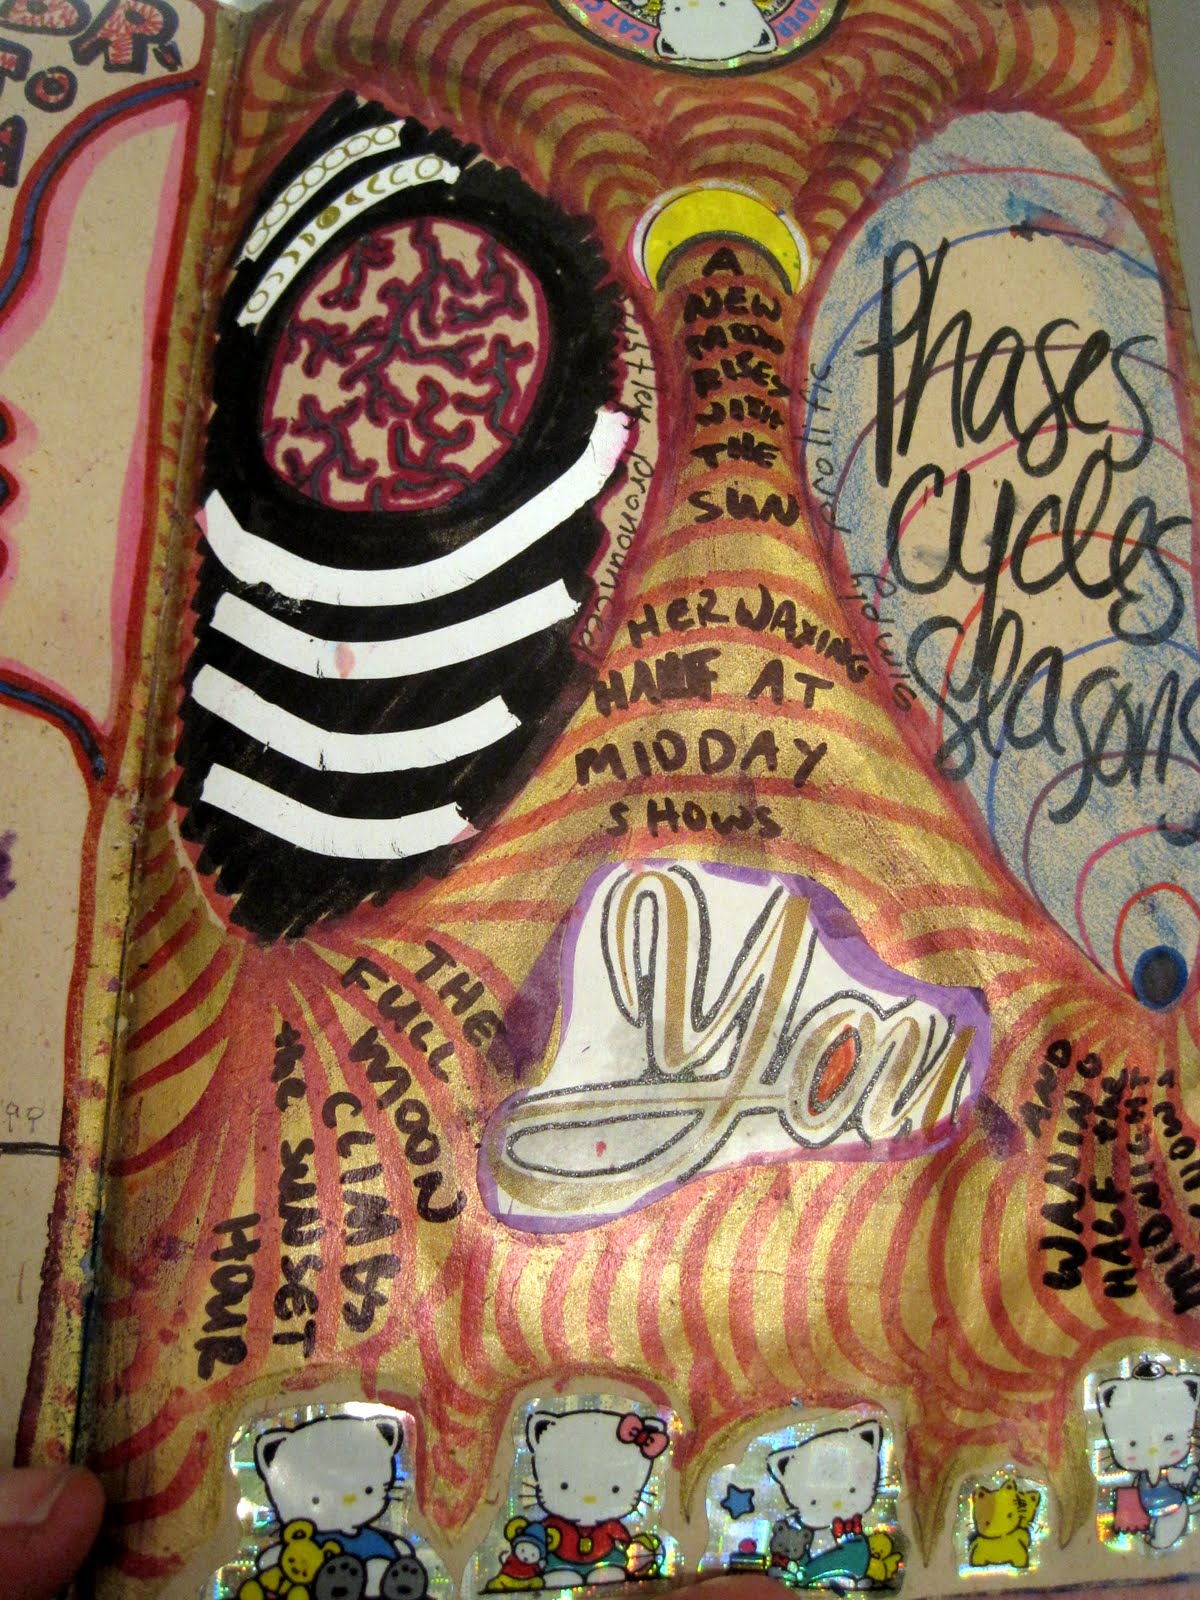 PAPER
CAT CL
OR,
TO
A
NEW
MOON
RISES
WITH
THE
SUN
HER WAXING
HALF AT
MIDDAY
SHOWS
Phases
Cycles
Seasons
prolific
simply
pronounced
You
THE
FULL
MOON
CLIMBS
SUNSET
HOUR
AND
WANING
HALF the
MIDNIGHT